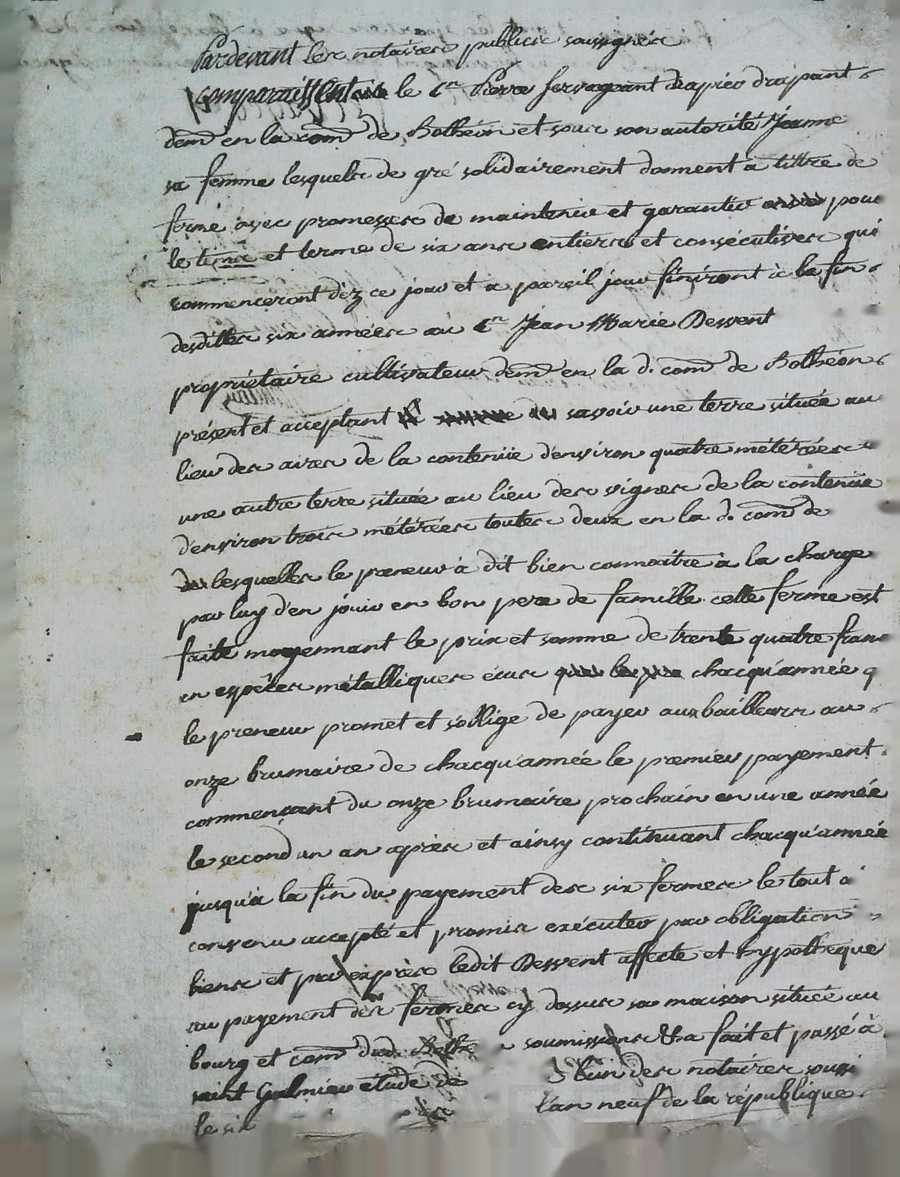 Pardevant les notaires publics soussignés
le c.en Pierre
dem.t en la com.ne de Bothéon et sous son autorité Jeanne
sa femme lesquels de gré solidairement donnent à tittre de
ferme avec promesses de maintenir et garantir pour
le tems et terme de six ans entiers et consécutives qui
commenceront dèz ce jour et a pareil jour finiront à la fin
desdittes six années au c.en Jean Marie Dessent
propriétaire cultivateur dem.t en la d. com.ne de Bothéon
présent et acceptant savoir une terre située au
lieu des aires de la contenüe d'environ quatre métérées
une autre terre située au lieu des vignes de la contenüe
d'environ trois métérées toutes deux en la d. com.ne de
lesquelles le preneur à dit bien connaitre à la charge
par luy d'en jouir en bon pere de famille cette ferme est
faite moyennant le prix et somme de trente quatre franc
en espèces métalliques écus chacqu'année q
le preneur promet et s'oblige de payer aux bailleurs au
onze brumaire de chacqu'année le premier payement
commençant du onze brumaire prochain en une année
le second un an après et ainsy continuant chacqu'année
jusqu'à la fin du payement des six fermes le tout a
convenu accepté et promis exécuter par obligation
biens et par exprès ledit Dessent affecte et hypotheque
au payement des fermes cy dessus sa maison située au
bourg et com.ne dud. Bothé soumissions &a fait et passé à
saint Galmier étude de l'un des notaires soussi
le six l'an neuf de la république